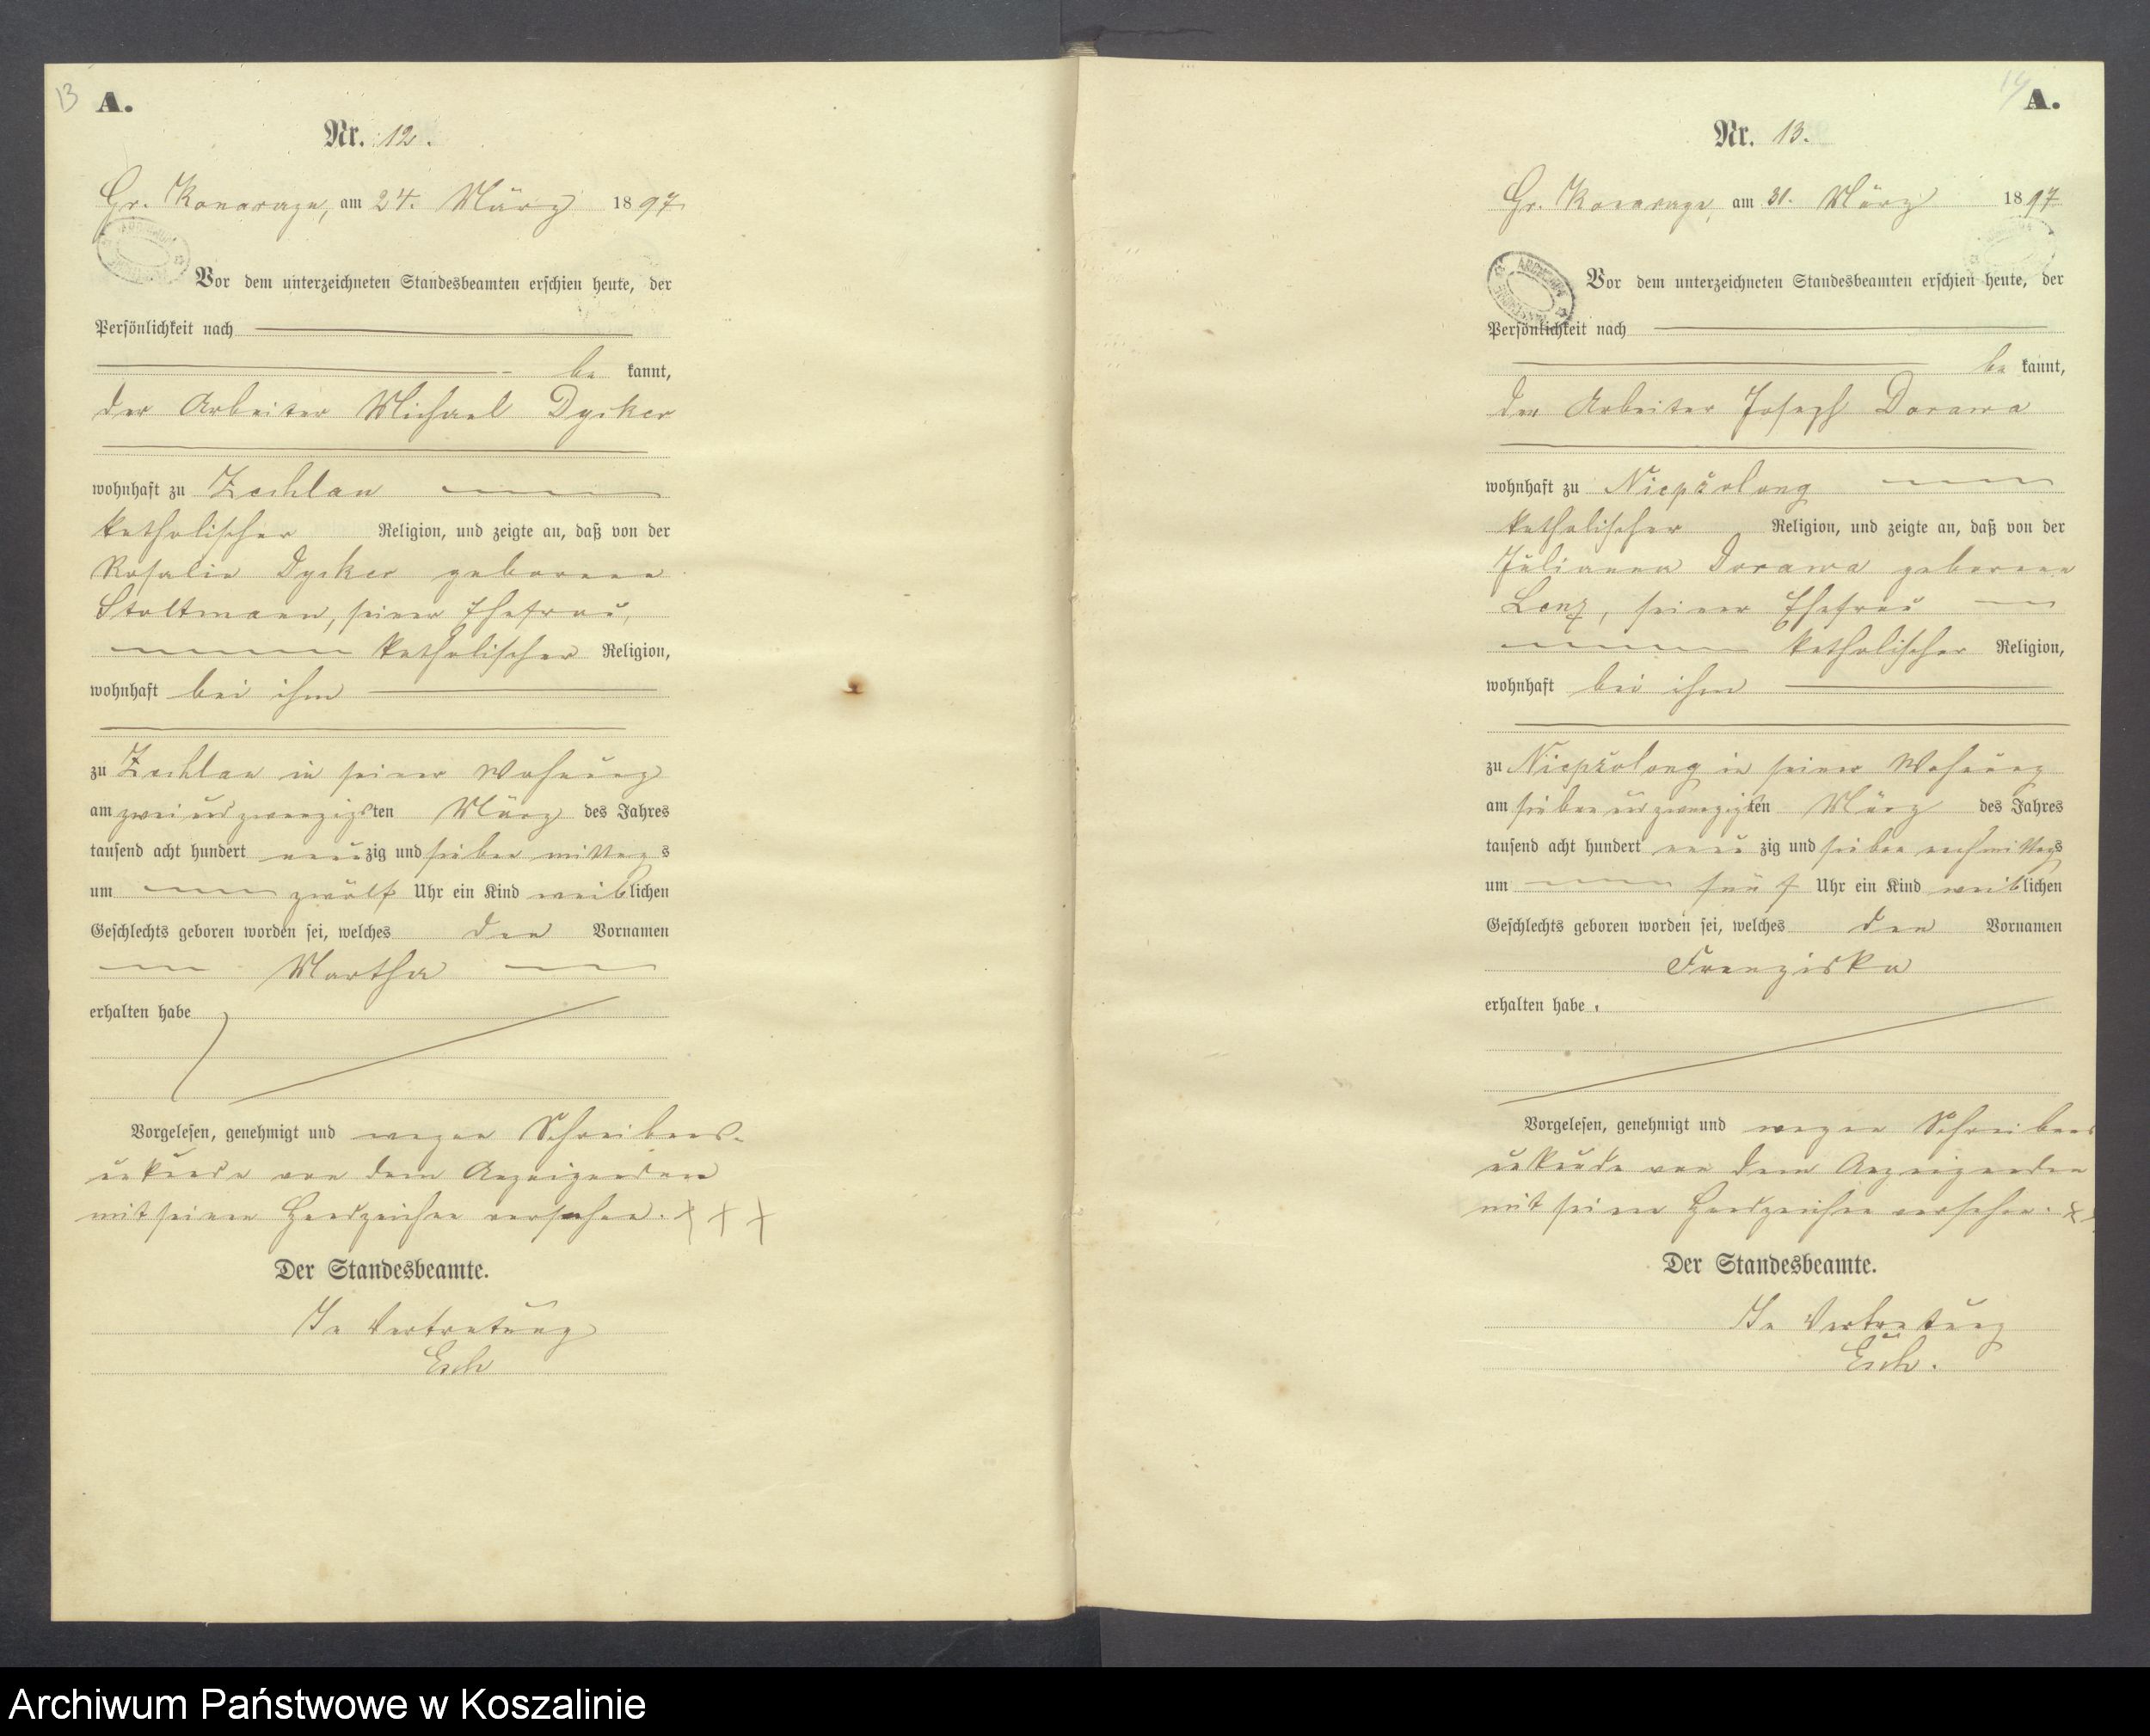 13
A.
Nr. 12.
Gr. Konarzyn, am 24. März 1897
Vor dem unterzeichneten Standesbeamten erschien heute, der
Persönlichkeit nach
be kannt,
der Arbeiter Michael Dysker
wohnhaft zu Zechlau
katholischer Religion, und zeigte an, daß von der
Rosalie Dysker geborene
Stoltmann, seiner Ehefrau,
katholischer Religion,
wohnhaft bei ihm
zu Zechlau in seiner Wohnung
am zwei und zwanzigsten März des Jahres
tausend acht hundert neunzig und sieben mittags
um zwölf Uhr ein Kind weiblichen
Geschlechts geboren worden sei, welches den Vornamen
Martha
erhalten habe
Vorgelesen, genehmigt und wegen Schreibens-
unkunde von dem Anzeigenden
mit seinen Handzeichen versehen. + + +
Der Standesbeamte.
In Vertretung
Esch
14
A.
Nr. 13.
Gr. Konarzyn, am 31. März 1897
Vor dem unterzeichneten Standesbeamten erschien heute, der
Persönlichkeit nach
be kannt,
der Arbeiter Joseph Dorawa
wohnhaft zu
katholischer Religion, und zeigte an, daß von der
Julianna Dorawa geborene
Lenz, seiner Ehefrau
katholischer Religion,
wohnhaft bei ihm
zu in seiner Wohnung
am sieben und zwanzigsten März des Jahres
tausend acht hundert neun zig und sieben nachmittags
um fünf Uhr ein Kind weiblichen
Geschlechts geboren worden sei, welches den Vornamen
Franziska
erhalten habe.
Vorgelesen, genehmigt und wegen Schreibens
unkunde von dem Anzeigenden
mit seinen Handzeichen versehen. +
Der Standesbeamte.
In Vertretung
Esch.
Archiwum Państwowe w Koszalinie